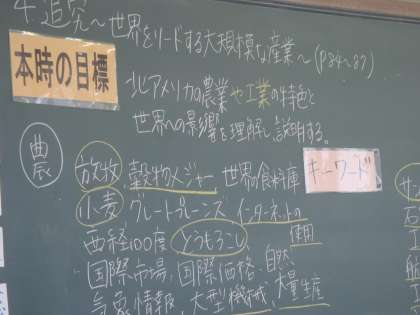 4.追究～世界をリードする大規模な産業～(P84～87)
本時の目標
北アメリカの農業や工業の特色と
世界への影響を理解し説明する。
農
放牧、穀物メジャー 世界の食料庫
キーワード
小麦 グレートプレーンズ インターネットの
使用
西経100度 とうもろこし
国際市場、国際価格、自然、
気象情報、大型機械、大量生産